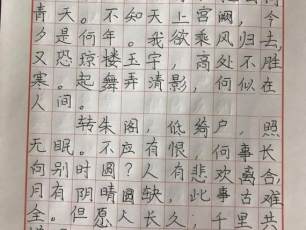 青天。不知天上宫阙，今
夕是何年。我欲乘风归去，
又恐琼楼玉宇，高处不胜
寒。起舞弄清影，何似在
人间。
转朱阁，低绮户，照
无眠。不应有恨，何事长
向别时圆？人有悲欢离合，
月有阴晴圆缺，此事古难
全。但愿人长久，千里共